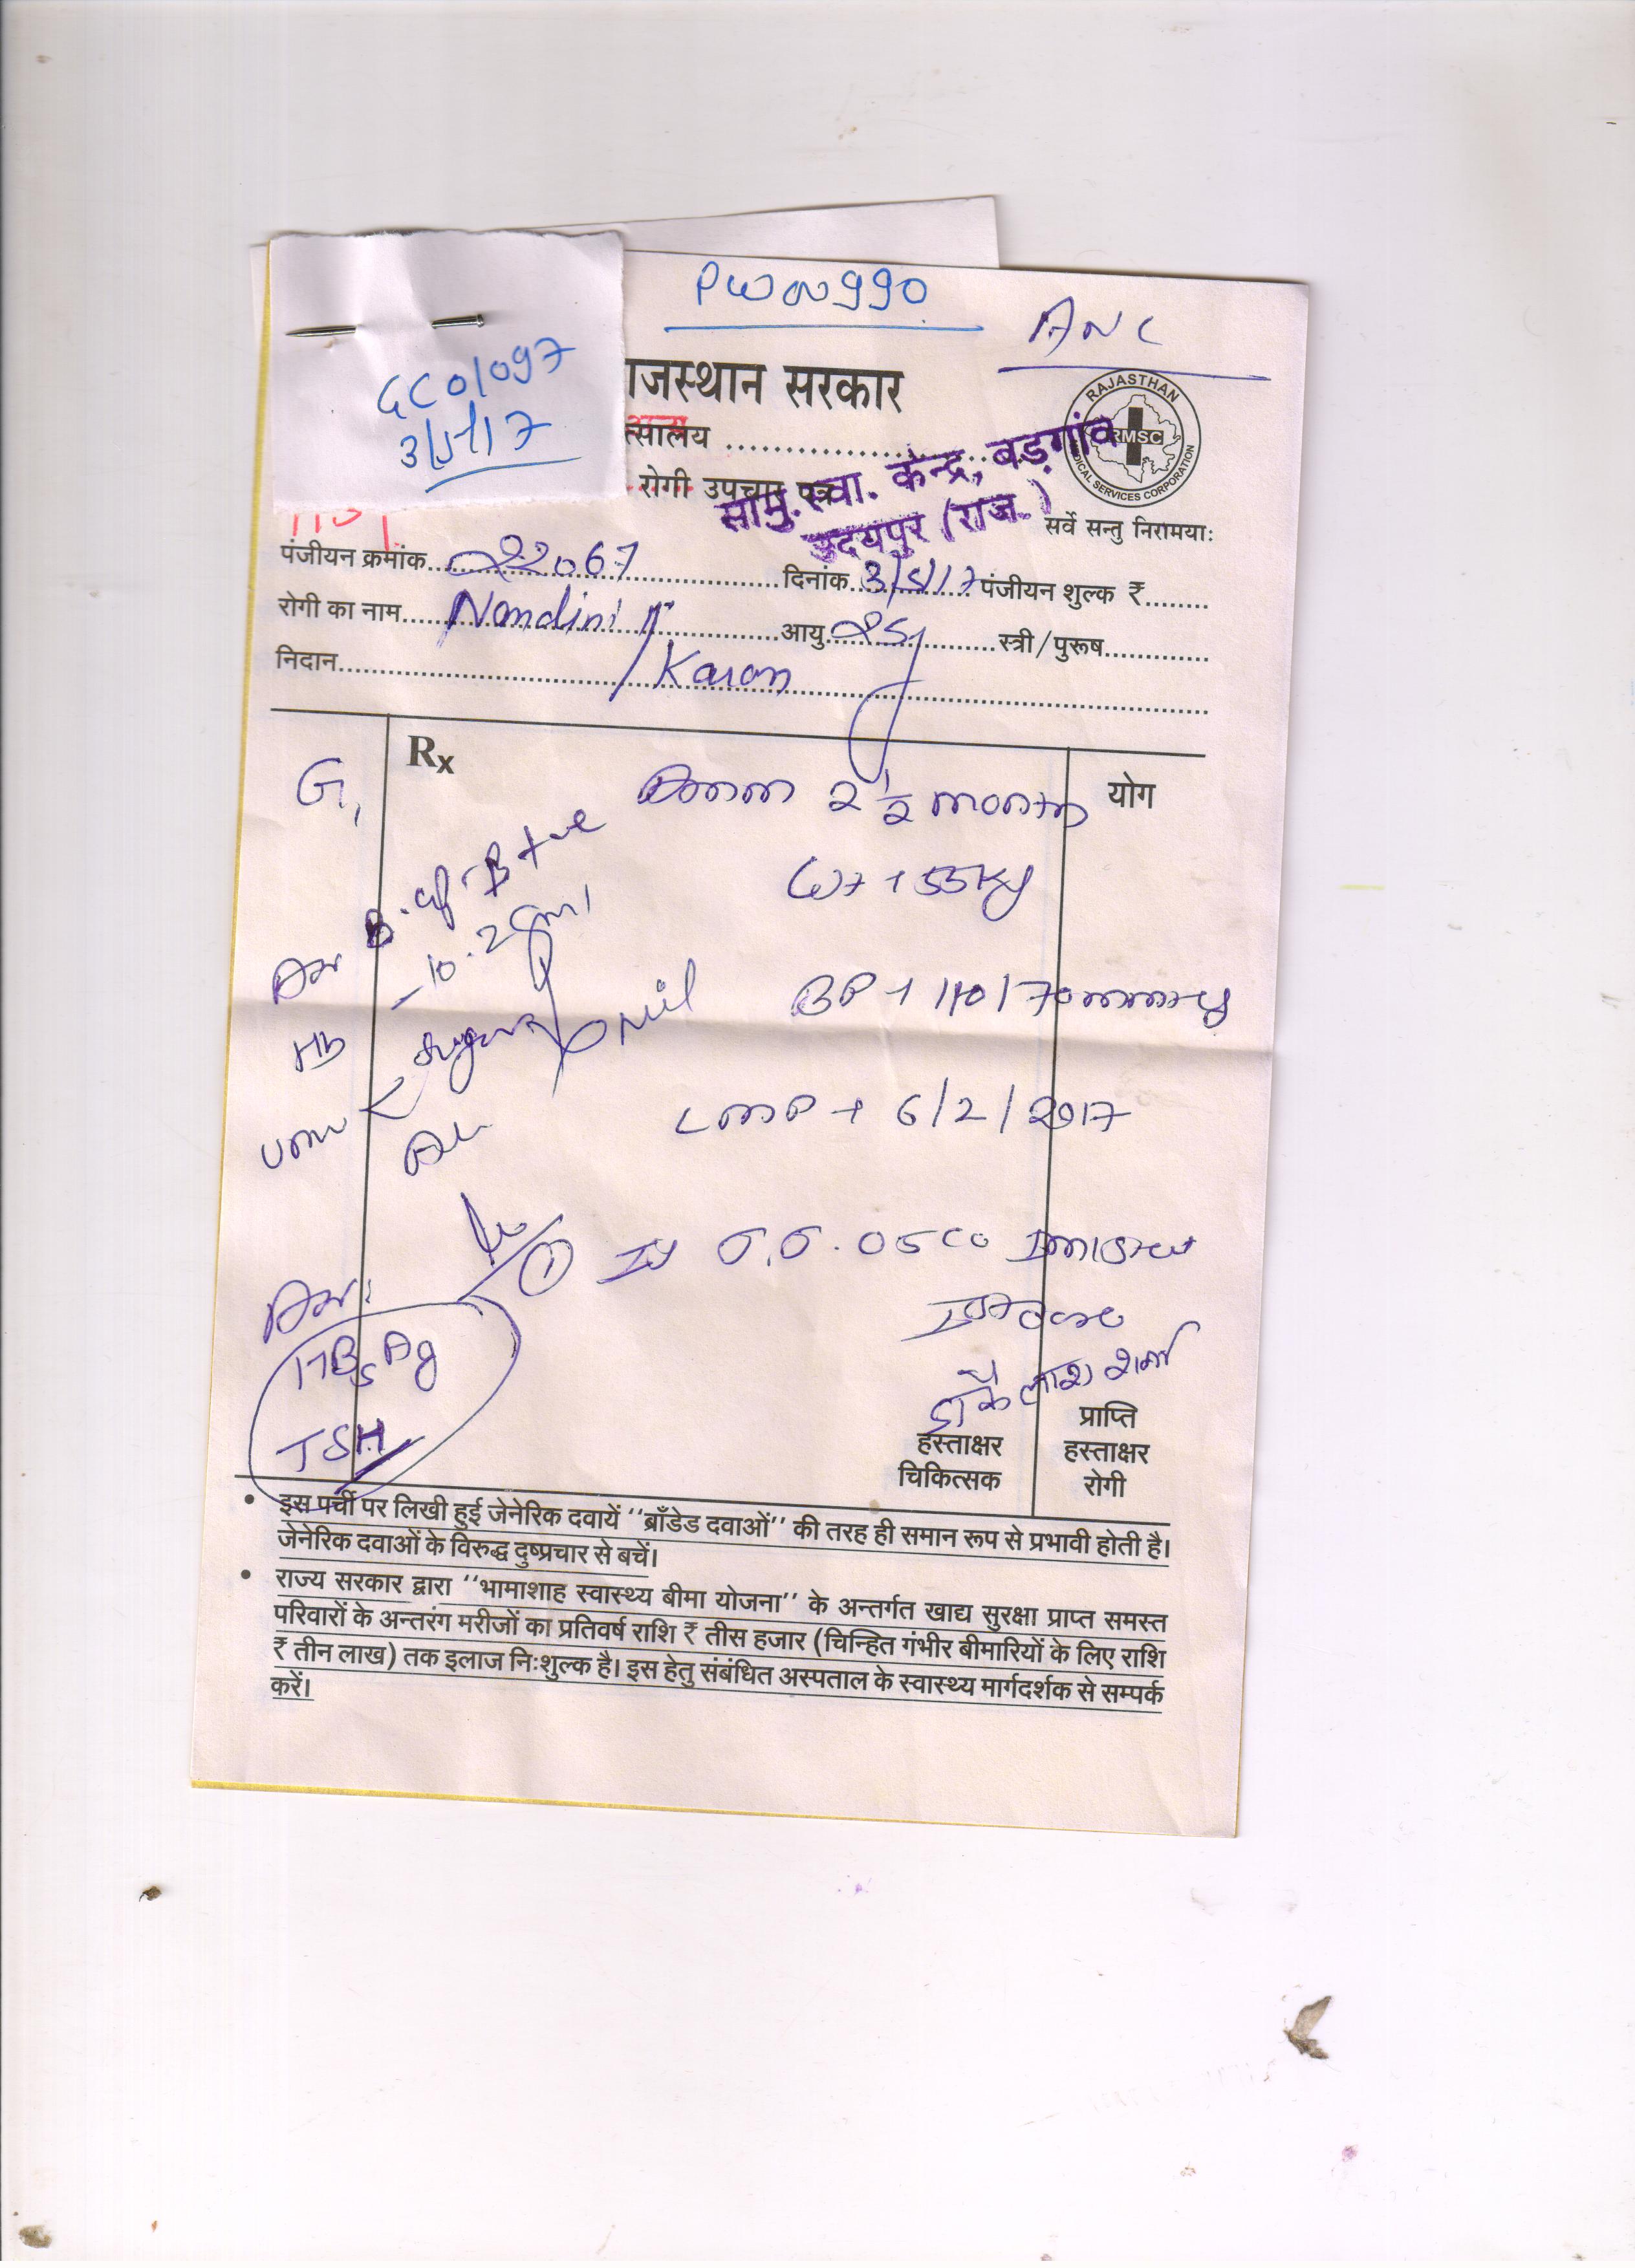 PW02990
ANC
GC01097
3/5/17
राजस्थान सरकार
RAJASTHAN
RMSC
MEDICAL SERVICES CORPORATION
त्सालय
रोगी उपचार पत्र
सामु. स्वा. केन्द्र, बड़गांव
उदयपुर (राज.)
सर्वे सन्तु निरामयाः
पंजीयन क्रमांक 22067 दिनांक 3/5/17 पंजीयन शुल्क ₹
रोगी का नाम Nandini आयु 25 स्त्री/पुरूष
निदान / Karan
Rx
योग
G1
2 1/2 month
B. gp B +ve
Wt 55 kg
HB - 10.2 gm
BP 110/70 mmHg
Sugar Nil
Alb
LMP 6/2/2017
① T.T. 0.5 cc
HBsAg
TSH
डॉ कैलाश शर्मा
हस्ताक्षर
चिकित्सक
प्राप्ति
हस्ताक्षर
रोगी
• इस पर्ची पर लिखी हुई जेनेरिक दवायें ''ब्राँडेड दवाओं'' की तरह ही समान रूप से प्रभावी होती है।
जेनेरिक दवाओं के विरुद्ध दुष्प्रचार से बचें।
• राज्य सरकार द्वारा ''भामाशाह स्वास्थ्य बीमा योजना'' के अन्तर्गत खाद्य सुरक्षा प्राप्त समस्त
परिवारों के अन्तरंग मरीजों का प्रतिवर्ष राशि ₹ तीस हजार (चिन्हित गंभीर बीमारियों के लिए राशि
₹ तीन लाख) तक इलाज निःशुल्क है। इस हेतु संबंधित अस्पताल के स्वास्थ्य मार्गदर्शक से सम्पर्क
करें।